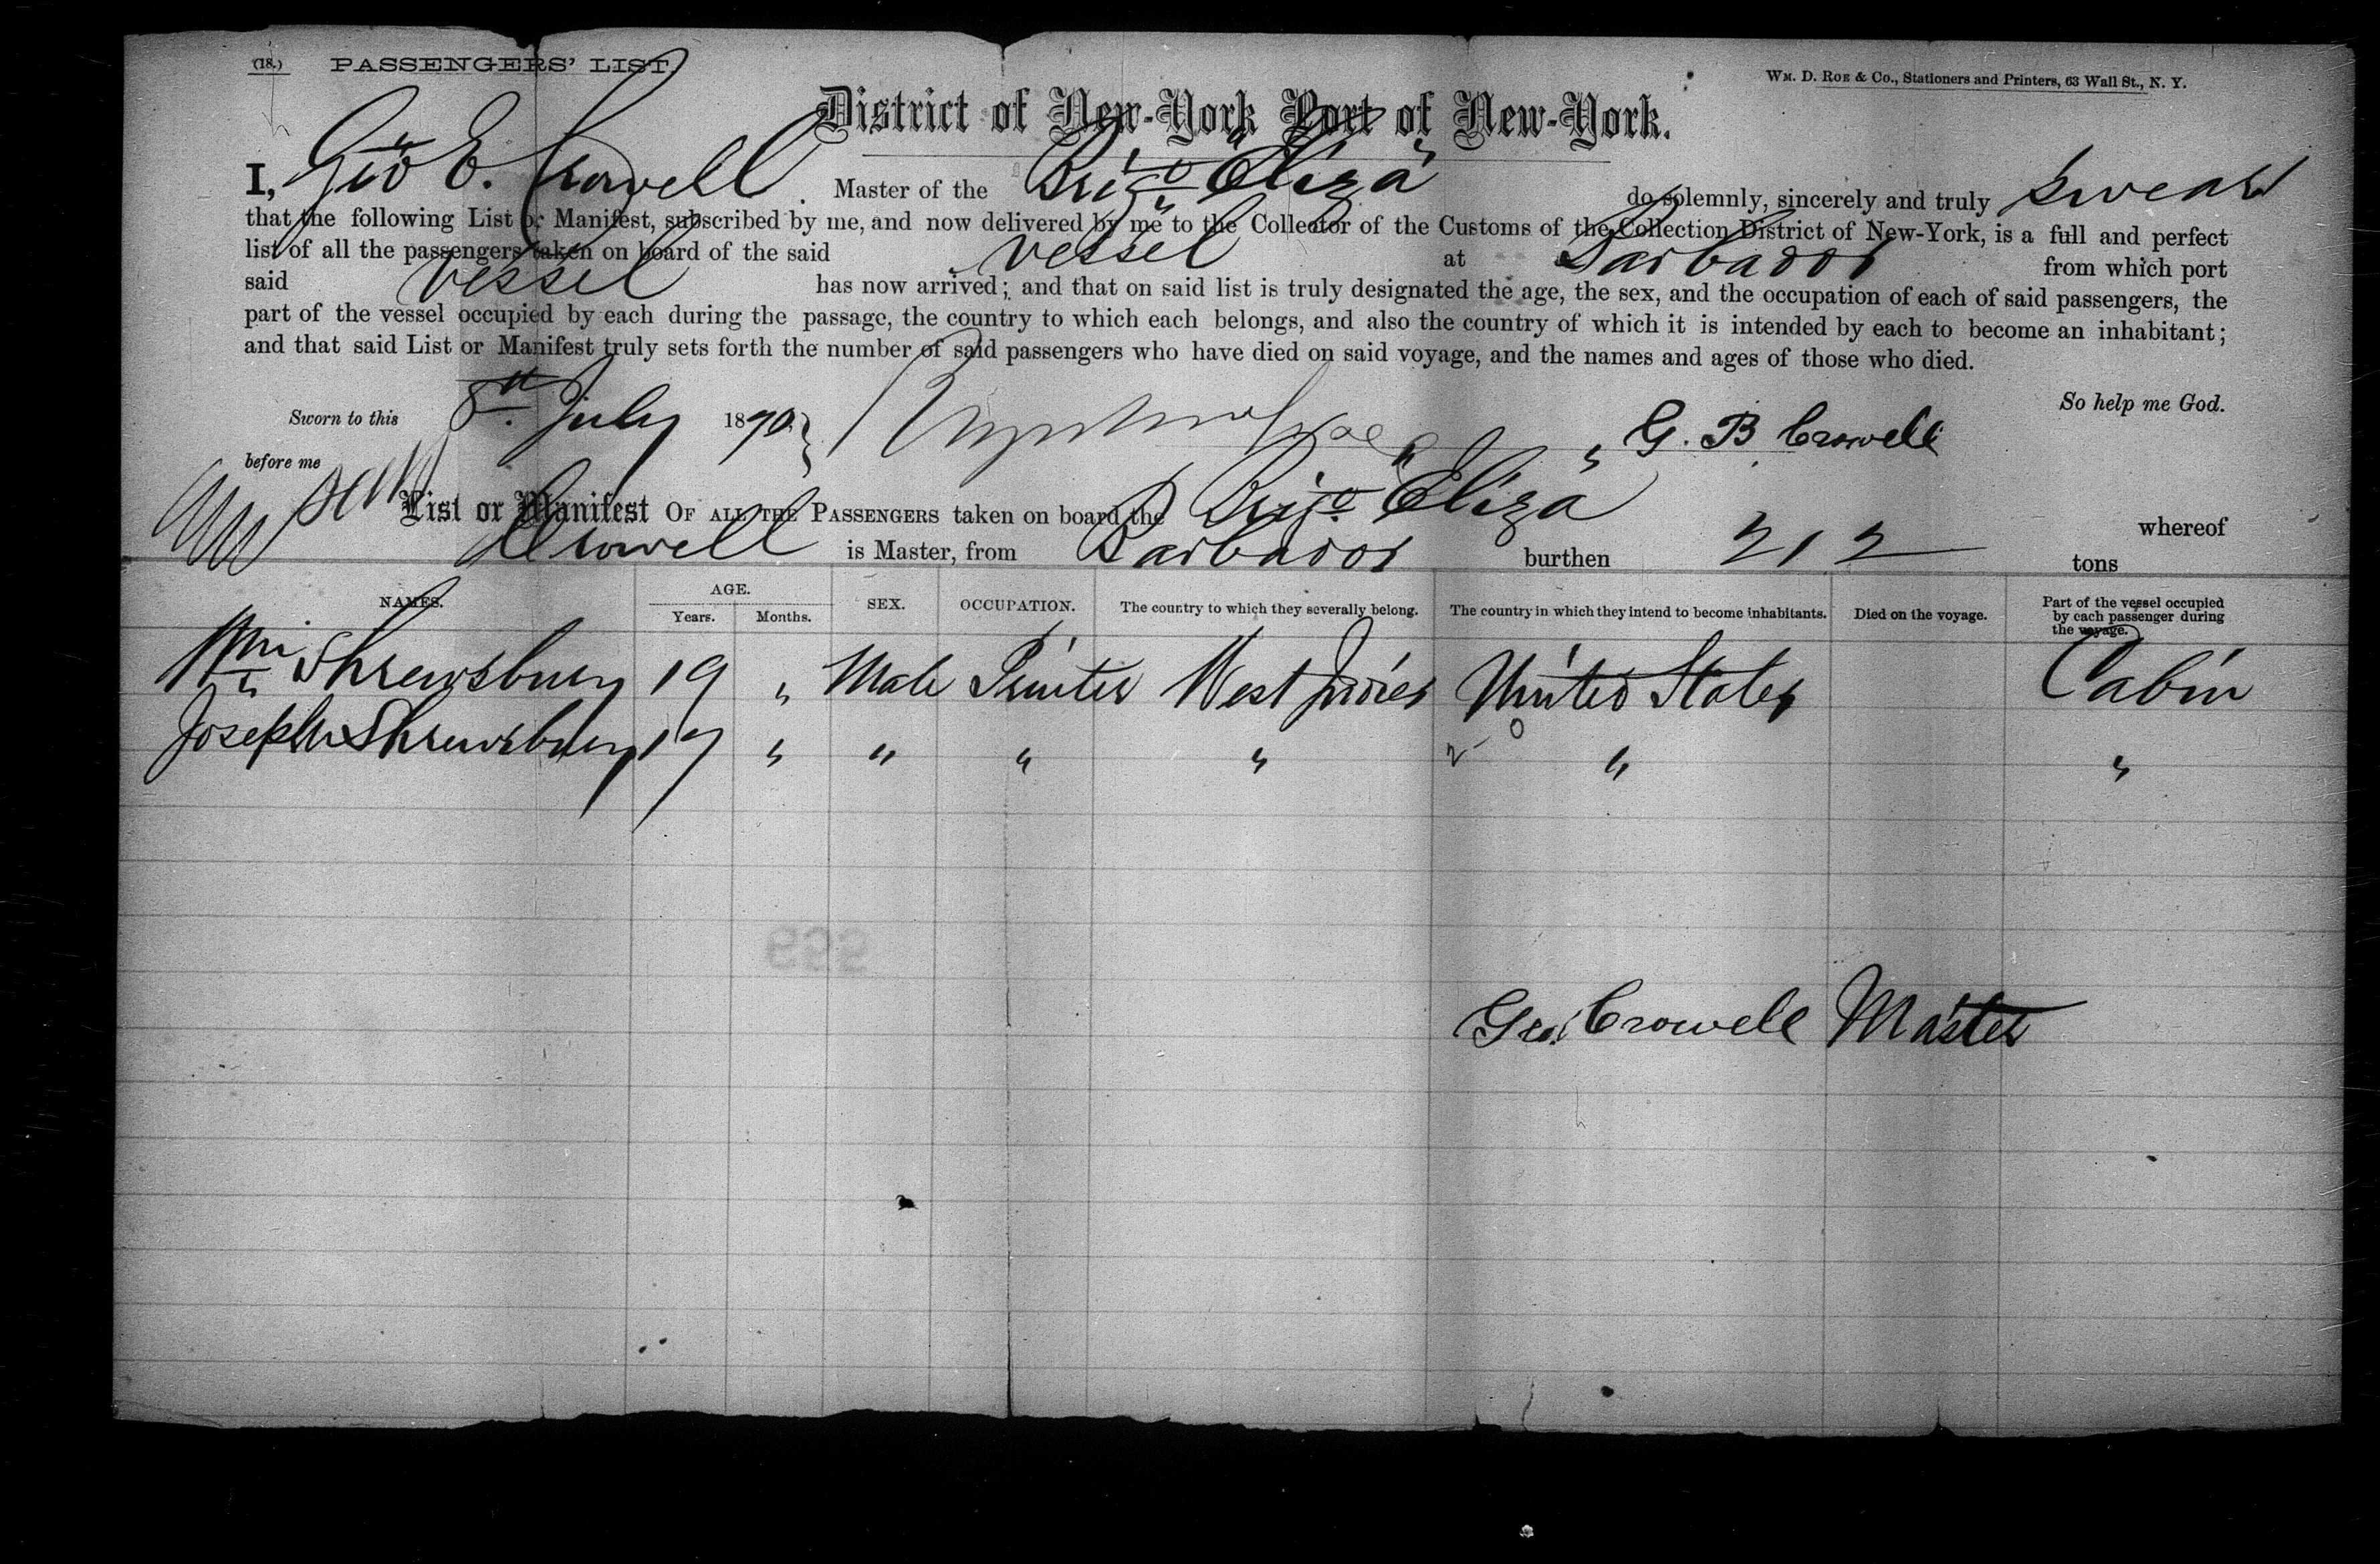 (18.) PASSENGERS' LIST.
WM. D. ROE & CO., Stationers and Printers, 63 Wall St., N. Y.
District of New-York Port of New-York.
I, Geo E. Crowell Master of the Brig "Eliza" do solemnly, sincerely and truly swear
that the following List or Manifest, subscribed by me, and now delivered by me to the Collector of the Customs of the Collection District of New-York, is a full and perfect
list of all the passengers taken on board of the said vessel at Barbados from which port
said vessel has now arrived; and that on said list is truly designated the age, the sex, and the occupation of each of said passengers, the
part of the vessel occupied by each during the passage, the country to which each belongs, and also the country of which it is intended by each to become an inhabitant;
and that said List or Manifest truly sets forth the number of said passengers who have died on said voyage, and the names and ages of those who died.
So help me God.
Sworn to this 8th July 1870.
G. B Crowell
before me
List or Manifest OF ALL THE PASSENGERS taken on board the Brig "Eliza" whereof
Crowell is Master, from Barbados burthen 212 tons
NAMES. AGE. Years. Months. SEX. OCCUPATION. The country to which they severally belong. The country in which they intend to become inhabitants. Died on the voyage. Part of the vessel occupied by each passenger during the voyage.
Wm Shrewsbury 19 " Male Printer West Indies United States Cabin
Joseph Shrewsbury 17 " " " " " "
2 - 0
Geo. Crowell Master